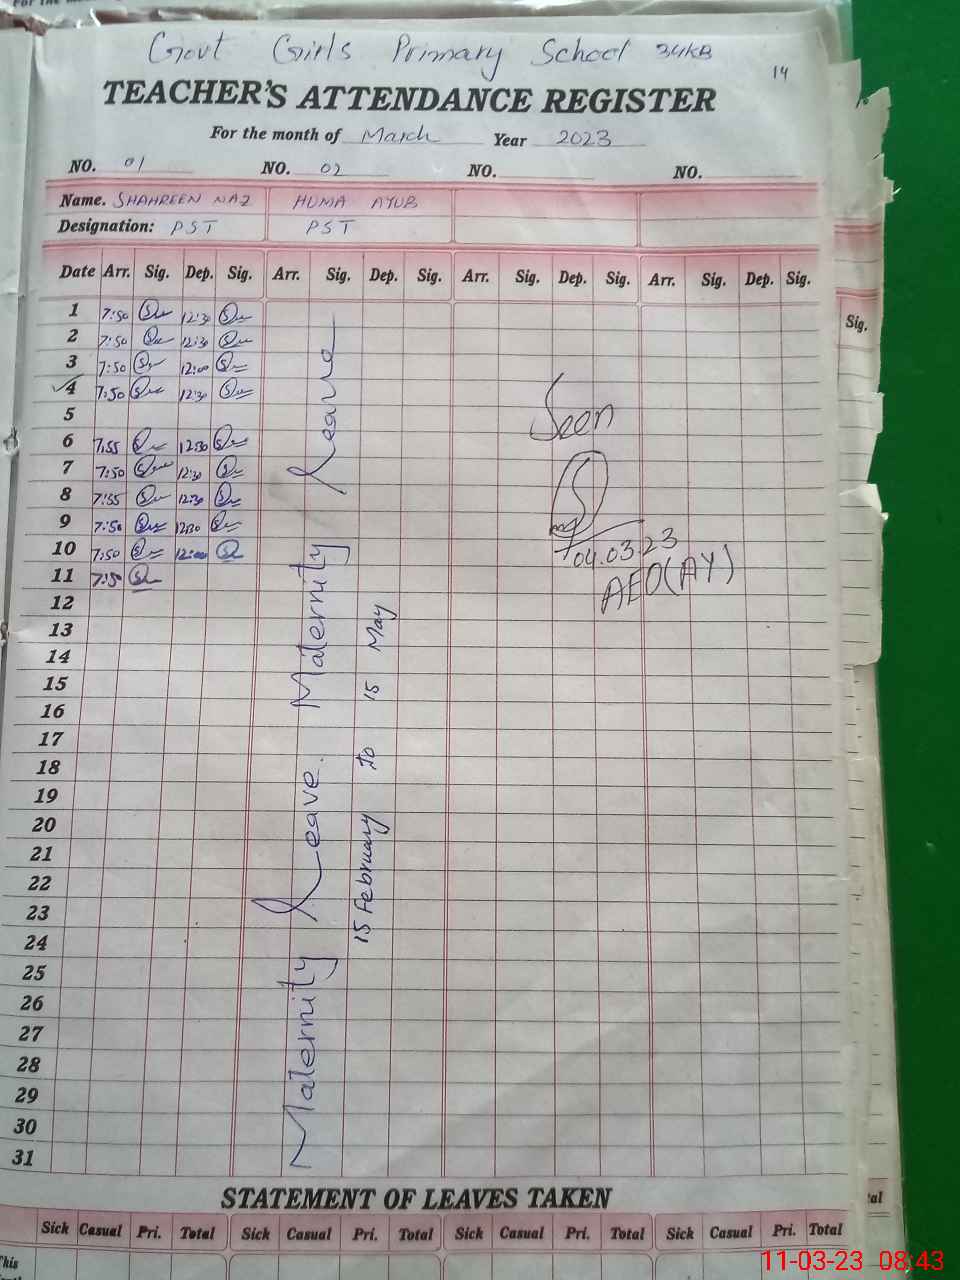 Govt Girls Primary School 34KB
14
TEACHER'S ATTENDANCE REGISTER
For the month of March Year 2023
NO. 01 NO. 02 NO. NO.
Name. SHAHREEN NAZ HUMA AYUB
Designation: PST PST
Date Arr. Sig. Dep. Sig. Arr. Sig. Dep. Sig. Arr. Sig. Dep. Sig. Arr. Sig. Dep. Sig.
1 7:50 12:30
2 7:50 12:30
3 7:50 12:00
4 7:50 12:30
5
6 7:55 12:30
7 7:50 12:30
8 7:55 12:30
9 7:50 12:30
10 7:50 12:00
11 7:50
12
13
14
15
16
17
18
19
20
21
22
23
24
25
26
27
28
29
30
31
Maternity Leave. Maternity Leave
15 February to 15 May
Seen
04.03.23
AEO(AY)
Sig.
STATEMENT OF LEAVES TAKEN
Sick Casual Pri. Total Sick Casual Pri. Total Sick Casual Pri. Total Sick Casual Pri. Total
This
11-03-23 08:43